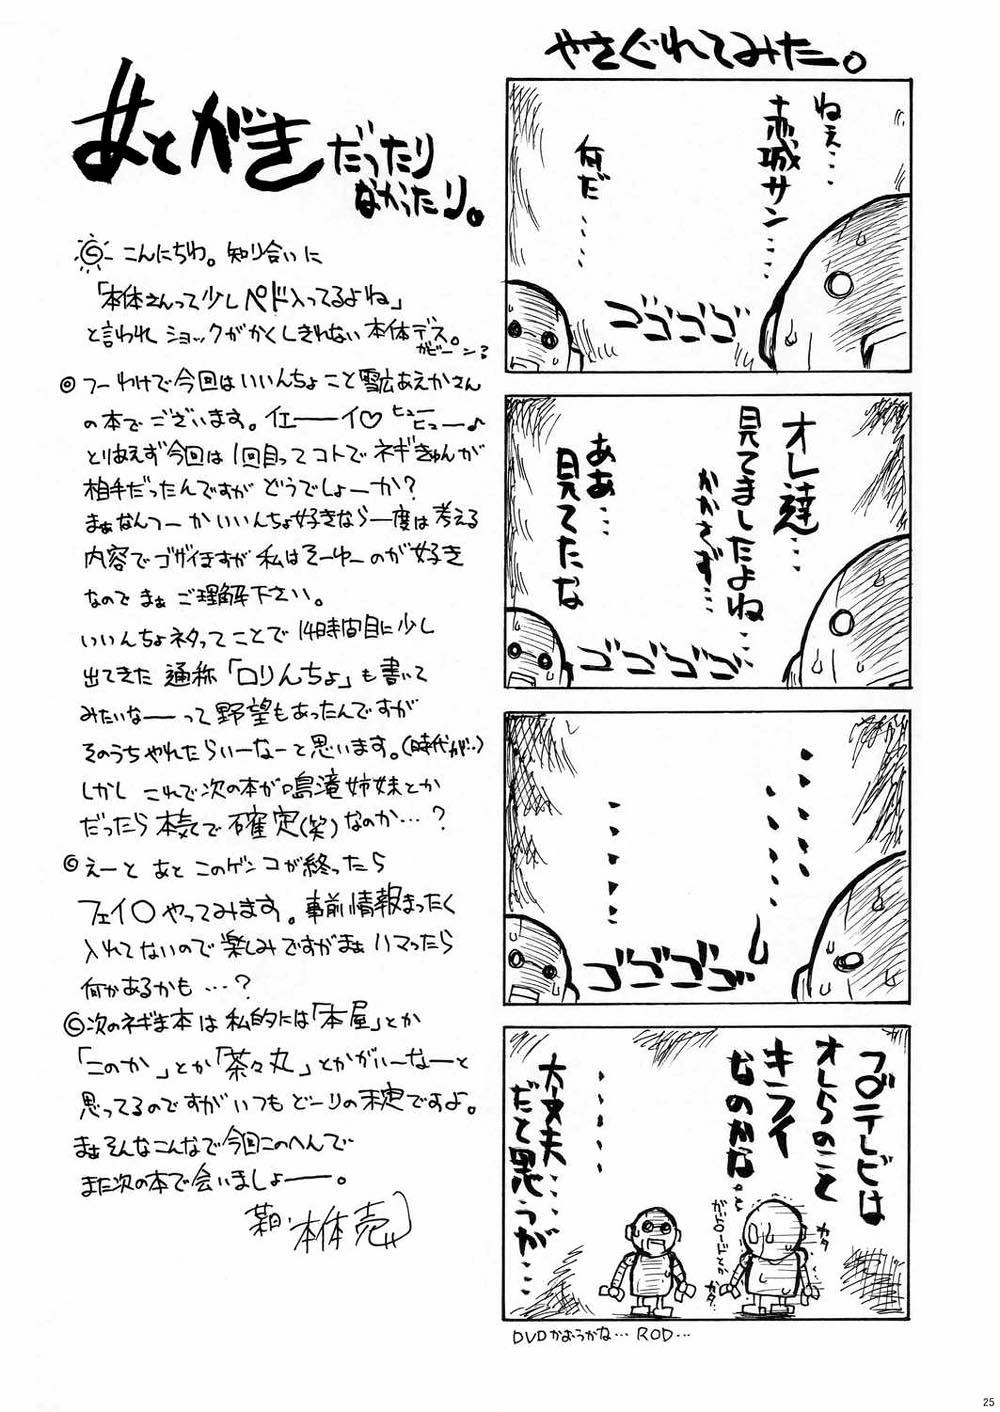 あとがきだったり
なかったり。
こんにちわ。知り合いに
「本体さんって少しペド入ってるよね」
と言われショックがかくしきれない本体デス。
ガビーン
◎つーわけで今回はいいんちょこと雪広あえかさん
の本でございます。イエーーイ♡ヒューヒュー♪
とりあえず今回は1回目ってコトでネギきゅんが
相手だったんですがどうでしょーか?
まぁなんつーかいいんちょ好きなら一度は考える
内容でゴザイますが私はそーゆーのが好き
なのでまぁご理解下さい。
いいんちょネタってことで14時間目に少し
出てきた通称「ロリんちょ」も書いて
みたいなーーって野望もあったんですが
そのうちやれたらいーなーと思います。(時代が‥)
しかしこれで次の本が鳴滝姉妹とか
だったら本気で不確定(笑)なのか…?
◎えーとあとこのゲンコが終ったら
フェイ○やってみます。事前情報まったく
入れてないので楽しみですがまぁハマったら
何かあるかも…?
◎次のネギま本は私的には「本屋」とか
「このか」とか「茶々丸」とかがいーなーと
思ってるのですがいつもどーりの未定ですよ。
まぁそんなこんなで今回このへんで
また次の本で会いましょーー。
本体売
やさぐれてみた。
ねぇ…
赤城サン……
何だ…
ゴゴゴゴ
オレ達…
見てましたよね…
かかさず…
ああ…
見てたな
ゴゴゴゴ
ゴゴゴゴ
フ○テレビは
オレらのこと
キライ
なのかな。と
ガ○ロードとか
カタ
カタ
大丈夫…
だと思うが…
DVDかおうかな… ROD…
25